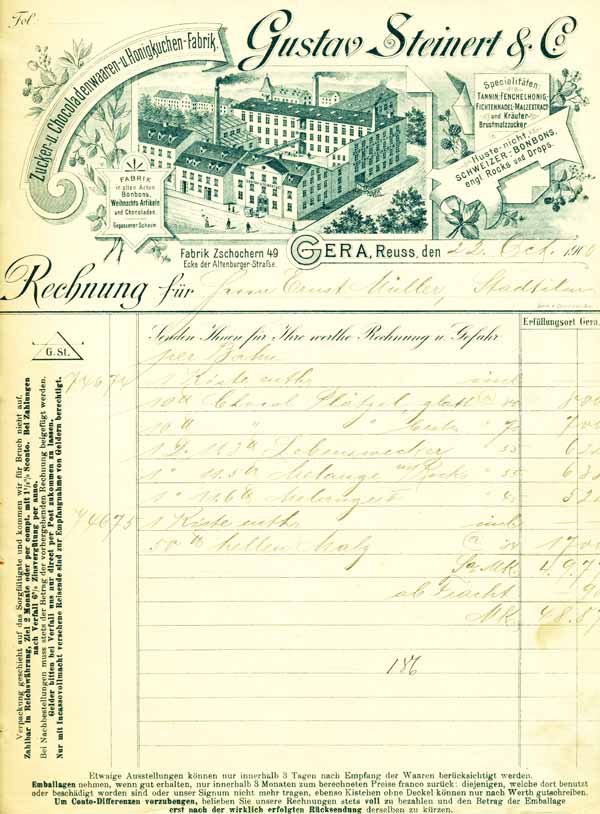 Fol.
Zucker- u. Chocoladenwaaren- u. Honigkuchen-Fabrik.
Gustav Steinert & Co
Specialitäten:
TANNIN, FENCHELHONIG,
FICHTENNADEL-MALZEXTRACT
und Kräuter-
Brustmalzzucker.
Huste-nicht,
SCHWEIZER-BONBONS,
engl. Rocks und Drops.
FABRIK
in allen Arten
Bonbons,
Weihnachts-Artikeln
und Chocoladen.
Gegossener Schaum.
Fabrik Zschochern 49
Ecke der Altenburger-Straße.
GERA, Reuss, den 22. Oct. 190
Rechnung für Herrn Ernst Müller, Stadtilm
G. St.
Senden Ihnen für Ihre werthe Rechnung u. Gefahr
Erfüllungsort Gera.
per Bahn
1 Kiste enth.
10 Chocol. Plätzel, glatt
1 D. Lebenswecker 55
Melange Rocks 55
74675 1 Kiste enth.
50 hellen Malz 17.0
Sa. MK. 49.7
ab Fracht
MK. 48.87
186
Verpackung geschieht auf das Sorgfältigste und kommen wir für Bruch nicht auf.
Zahlbar in Reichswährung, Ziel 2 Monate oder per compt. mit 1½% Sconto. Bei Zahlungen
nach Verfall 6% Zinsvergütung per anno.
Bei Nachbestellungen muss stets der Betrag der vorhergehenden Rechnung beigefügt werden.
Gelder bitten bei Verfall uns nur direct per Post zukommen zu lassen.
Nur mit Incassovollmacht versehene Reisende sind zur Empfangnahme von Geldern berechtigt.
Etwaige Ausstellungen können nur innerhalb 3 Tagen nach Empfang der Waaren berücksichtigt werden.
Emballagen nehmen, wenn gut erhalten, nur innerhalb 3 Monaten zum berechneten Preise franco zurück; diejenigen, welche dort benutzt
oder beschädigt worden sind oder unser Signum nicht mehr tragen, ebenso Kistchen ohne Deckel können nur nach Werth gutschreiben.
Um Conto-Differenzen vorzubeugen, belieben Sie unsere Rechnungen stets voll zu bezahlen und den Betrag der Emballage
erst nach der wirklich erfolgten Rücksendung derselben zu kürzen.